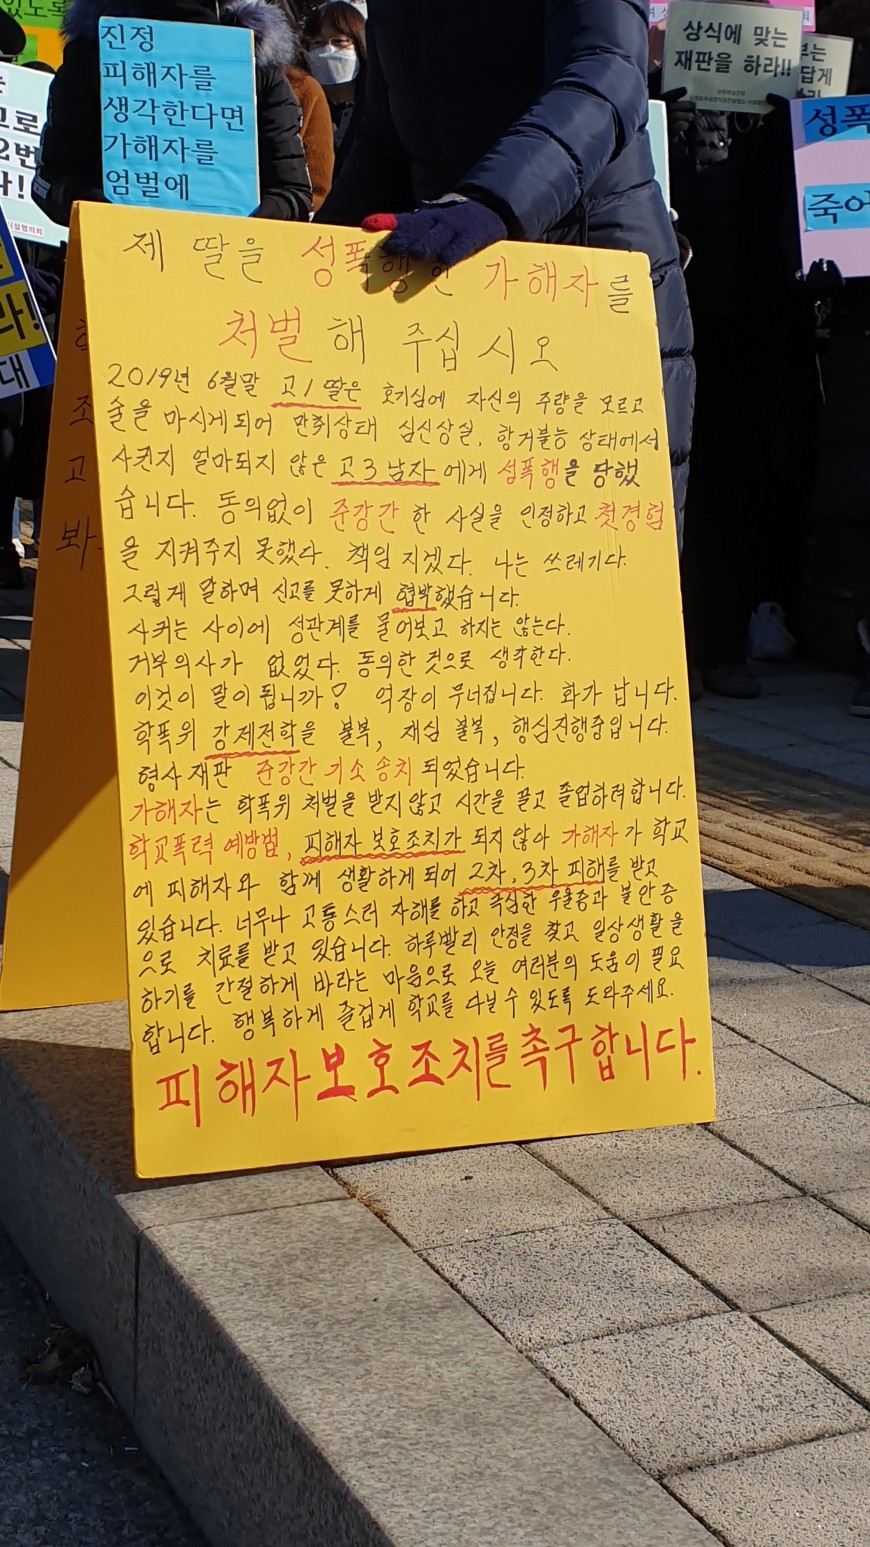 있도록
진정
피해자를
생각한다면
가해자를
엄벌에
상식에 맞는
재판을 하라!!
제 딸을 성폭행한 가해자를
처벌해 주십시오
2019년 6월말 고1딸은 호기심에 자신의 주량을 모르고
술을 마시게되어 만취상태 심신상실, 항거불능 상태에서
사귄지 얼마되지 않은 고3남자에게 성폭행을 당했
습니다. 동의없이 준강간 한 사실을 인정하고 첫경험
을 지켜주지 못했다. 책임지겠다. 나는 쓰레기다.
그렇게 말하며 신고를 못하게 협박했습니다.
사커는 사이에 성관계를 물어보고 하지는 않는다.
거부의사가 없었다. 동의한 것으로 생각한다.
이것이 말이 됩니까! 억장이 무너집니다. 화가 납니다.
학폭위 강제전학을 불복, 재심 불복, 행심진행중입니다.
형사재판 준강간 기소 송치 되었습니다.
가해자는 학폭위 처벌을 받지않고 시간을 끌고 졸업하려합니다.
학교폭력 예방법, 피해자 보호조치가 되지않아 가해자가 학교
에 피해자와 함께 생활하게 되어 2차, 3차 피해를 받고
있습니다. 너무나 고통스러 자해를 하고 극심한 우울증과 불안증
으로 치료를 받고 있습니다. 하루빨리 안정을 찾고 일상생활을
하기를 간절하게 바라는 마음으로 오늘 여러분의 도움이 필요
합니다. 행복하게 즐겁게 학교를 다닐 수 있도록 도와주세요.
피해자보호조치를촉구합니다.